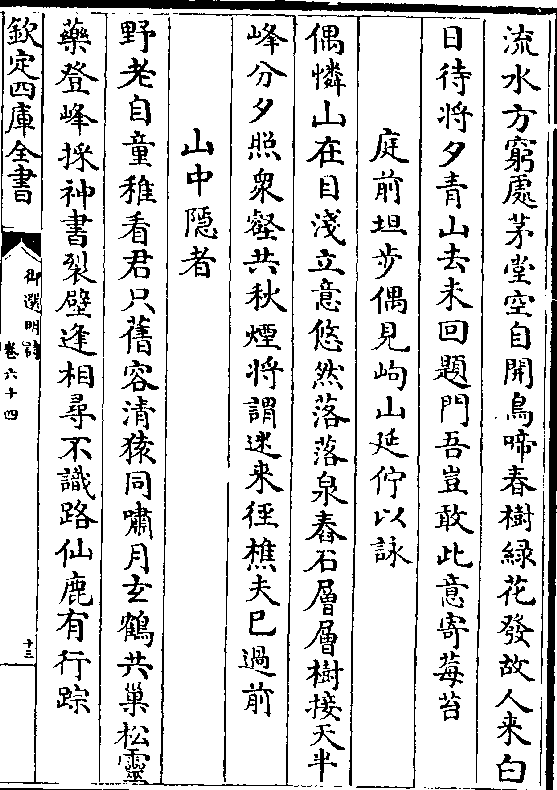 流水方窮處茅堂空自開鳥啼春樹緑花發故人来白
日待將夕青山去未回題門吾豈敢此意寄莓苔
庭前坦步偶見岣山延佇以詠
偶憐山在目淺立意悠然落落泉舂石層層樹接天半
峰分夕照衆壑共秋煙將謂迷来徑樵夫已過前
山中隠者
野老自童稚看君只舊容清猿同嘯月玄鶴共巢松靈
藥登峰採神書裂壁逢相尋不識路仙鹿有行踪
欽定四庫全書
御選明詩
卷六十四
十三